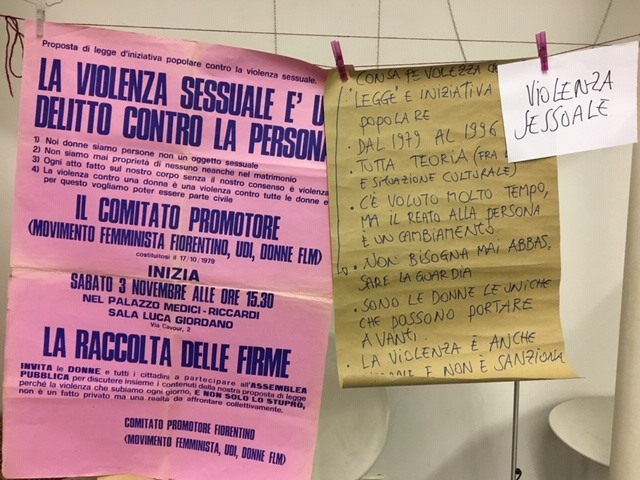 Proposta di legge d'iniziativa popolare contro la violenza sessuale.
LA VIOLENZA SESSUALE E' U
DELITTO CONTRO LA PERSONA
1) Noi donne siamo persone non un oggetto sessuale
2) Non siamo mai proprietà di nessuno neanche nel matrimonio
3) Ogni atto fatto sul nostro corpo senza il nostro consenso è violenza
4) La violenza contro una donna è una violenza contro tutte le donne e
per questo vogliamo poter essere parte civile
IL COMITATO PROMOTORE
(MOVIMENTO FEMMINISTA FIORENTINO, UDI, DONNE FLM)
costituitosi il 17/10/1979
INIZIA
SABATO 3 NOVEMBRE ALLE ORE 15.30
NEL PALAZZO MEDICI-RICCARDI
SALA LUCA GIORDANO
Via Cavour, 2
LA RACCOLTA DELLE FIRME
INVITA le DONNE e tutti i cittadini a partecipare all'ASSEMBLEA
PUBBLICA per discutere insieme i contenuti della nostra proposta di legge
perché la violenza che subiamo ogni giorno, E NON SOLO LO STUPRO,
non è un fatto privato ma una realtà da affrontare collettivamente.
COMITATO PROMOTORE FIORENTINO
(MOVIMENTO FEMMINISTA, UDI, DONNE FLM)
CONSAPEVOLEZZA
LEGGE E INIZIATIVA
POPOLARE
• DAL 1979 AL 1996
• TUTTA TEORIA (FRA
E SITUAZIONE CULTURALE)
• C'È VOLUTO MOLTO TEMPO,
MA IL REATO ALLA PERSONA
È UN CAMBIAMENTO.
• NON BISOGNA MAI ABBAS.
SARE LA GUARDIA
• SONO LE DONNE LE UNICHE
CHE POSSONO PORTARE
AVANTI.
• LA VIOLENZA È ANCHE
E NON È SANZIONA
VIOLENZA
SESSUALE